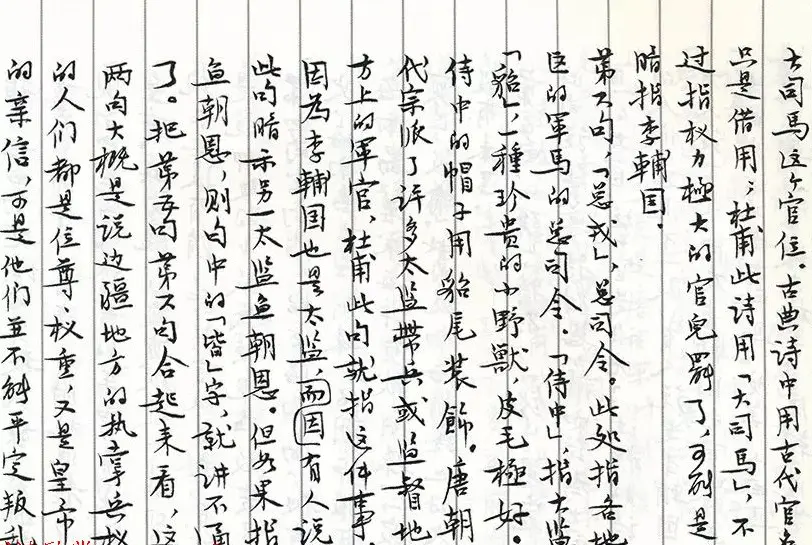 大司馬这个官位。古典诗中用古代官名
只是借用；杜甫此诗用「大司馬」，不
过指权力極大的官兒罷了，可能是
暗指李輔国。
第六句，「总戎」，总司令。此处指各地
区的軍馬的总司令。「侍中」，指太监
「貂」，一種珍贵的小野獸，皮毛極好。
侍中的帽子用貂尾装飾。唐朝
代宗派了许多太监帶兵或监督地
方上的军官，杜甫此句就指这件事。
因為李輔国也是太监，而因有人说
此句暗示另一太监鱼朝恩。但如果指
鱼朝恩，则句中的「皆」字，就讲不通
了。把第五句第六句合起来看，这
两句大概是说边疆地方的执掌兵权
的人们都是位尊、权重，又是皇帝
的亲信，可是他们並不能平定叛乱